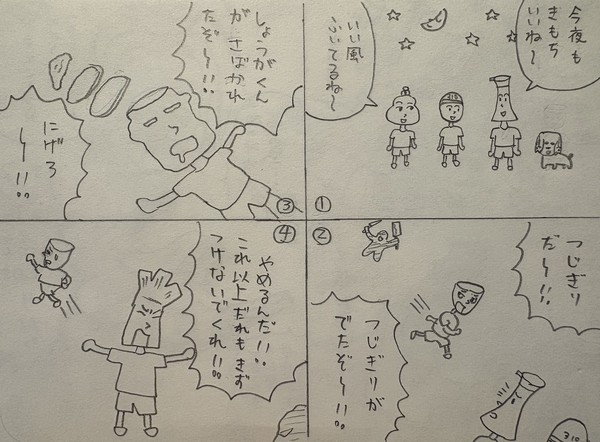 ①
今夜も
きもち
いいね〜
いい風
ふいてるね〜
②
つじぎり
だ〜!!
つじぎりが
でたぞ〜!!
③
しょうがくん
が さばかれ
たぞ〜!!
にげろ
〜!!
④
やめるんだ!!
これ以上だれもきず
つけないでくれ!!